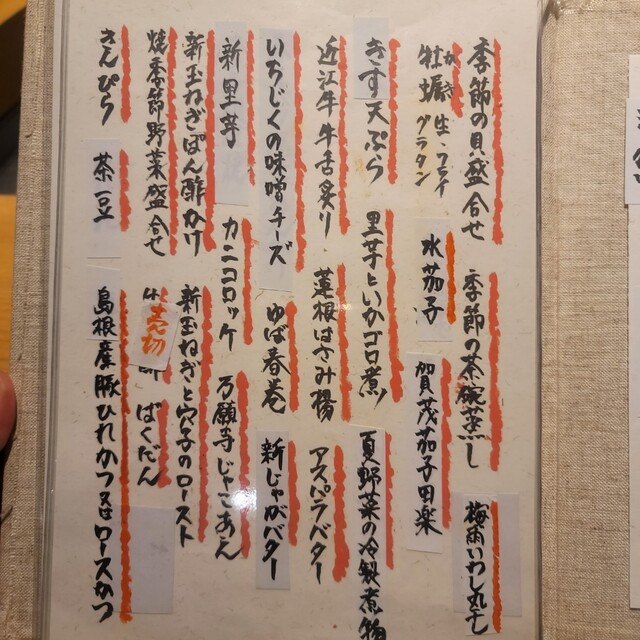 季節の貝盛合せ
季節の茶碗蒸し
梅雨いわし丸干
牡蠣 かき 生・フライ グラタン
水茄子
賀茂茄子田楽
きす天ぷら
里芋といかゴロ煮
夏野菜の冷製煮物
近江牛牛舌炙り
蓮根はさみ揚
アスパラバター
いちじくの味噌チーズ
ゆば春巻
新じゃがバター
新里芋
カニコロッケ
万願寺じゃこあん
新玉ねぎぽん酢かけ
新玉ねぎと穴子のロースト
焼季節野菜盛合せ
売切
ばくだん
きんぴら
茶豆
島根産豚ひれかつ又はロースかつ